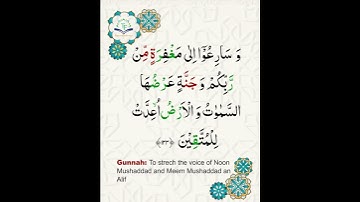 وَ سَارِعُوْۤا اِلٰى مَغْفِرَةٍ مِّنْ
رَّبِّكُمْ وَ جَنَّةٍ عَرْضُهَا
السَّمٰوٰتُ وَ الْاَرْضُ اُعِدَّتْ
لِلْمُتَّقِيْنَ ﴿۱۳۳﴾
Gunnah: To strech the voice of Noon
Mushaddad and Meem Mushaddad an
Alif